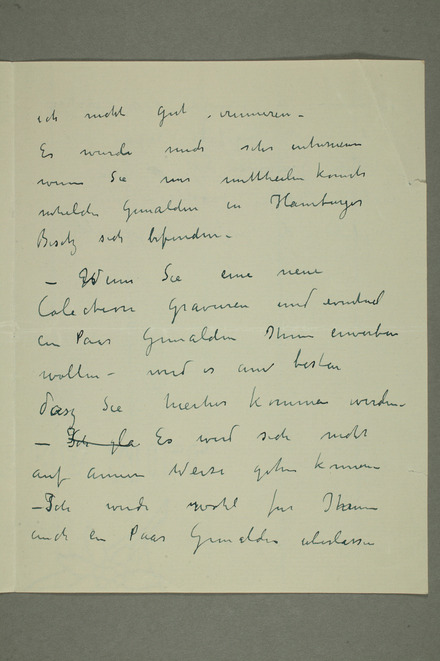 ich nicht gut erinneren -
Es wurde mich sehr interessieren
wenn Sie uns mittheilen konnte
welche Gemalden in Hamburger
Besitz sich befinden -
- Wenn Sie eine neue
Colection Gravuren und eventuel
en Paar Gemalden Ihnen erwerben
wollen - wird es am besten
dasz Sie hierher kommen werden -
- Ich gla Es wird sich nicht
auf andere Weise gehen konnen
- Ich wurde wohl fur Ihnen
auch en Paar Gemalden uberlassen